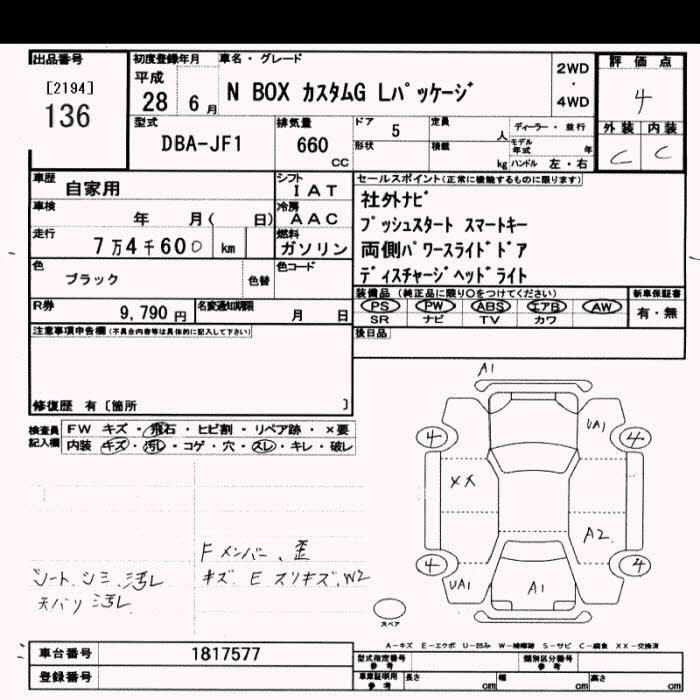 出品番号
[2194]
136
初度登録年月
平成
28年 6月
車名・グレード
N BOX カスタムG Lパッケージ
2WD
・
4WD
評価点
4
外装 内装
C C
型式
DBA-JF1
排気量
660
CC
ドア
5
定員
人
形状
積載
kg
ディーラー・並行
モデル年式 年
ハンドル 左・右
車歴
自家用
シフト
IAT
車検
年 月( 日)
冷房
AAC
走行
7万4千600 km
燃料
ガソリン
色
ブラック
色替
色コード
R券
9,790円
名変通知期限
月 日
セールスポイント(正常に機能するものに限ります)
社外ナビ
プッシュスタート スマートキー
両側パワースライドドア
ディスチャージヘッドライト
装備品(純正品に限り○をつけてください)
PS PW ABS エアB AW
SR ナビ TV カワ
新車保証書
有・無
後日品
注意事項申告欄(不具合内容等は具体的に記入して下さい)
修復歴 有〔箇所 〕
検査員記入欄
FW キズ・飛石・ヒビ割・リペア跡・×要
内装 キズ・汚レ・コゲ・穴・スレ・キレ・破レ
シート、シミ、汚レ
天バリ 汚レ
Fメンバー、歪
キズ E スリキズ、W2
A1
UA1
4
4
XX
A2
4
4
UA1
A1
スペア
A-キズ E-エクボ U-凹み W-補修跡 S-サビ C-腐食 XX-交換済
車台番号
1817577
登録番号
型式指定番号
参考
類別区分番号
参考
車庫証明用
参考
長さ cm
幅 cm
高さ cm